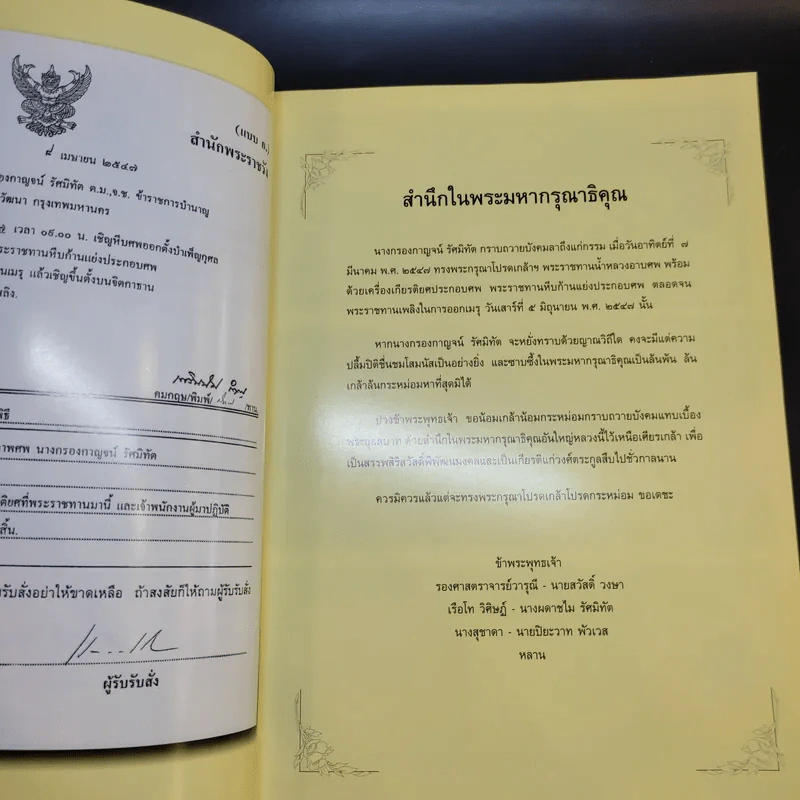 (แบบ ถ.)
สำนักพระราชวัง
๘ เมษายน ๒๕๔๗
รองกาญจน์ รัศมิทัต ต.ม.,จ.ช. ข้าราชการบำนาญ
วัฒนา กรุงเทพมหานคร
เวลา ๐๙.๐๐ น. เชิญหีบศพออกตั้งบำเพ็ญกุศล
พระราชทานหีบก้านแย่งประกอบศพ
นเมรุ แล้วเชิญขึ้นตั้งบนจิตกาธาน
พลิง.
คมกฤษ/พิมพ์/ /ทาน
พิธี
าพศพ นางกรองกาญจน์ รัศมิทัต
ติยศที่พระราชทานมานี้ และเจ้าพนักงานผู้มาปฏิบัติ
สิ้น.
รับสั่งอย่าให้ขาดเหลือ ถ้าสงสัยก็ให้ถามผู้รับรับสั่ง
ผู้รับรับสั่ง
สำนึกในพระมหากรุณาธิคุณ
นางกรองกาญจน์ รัศมิทัต กราบถวายบังคมลาถึงแก่กรรม เมื่อวันอาทิตย์ที่ ๗
มีนาคม พ.ศ. ๒๕๔๗ ทรงพระกรุณาโปรดเกล้าฯ พระราชทานน้ำหลวงอาบศพ พร้อม
ด้วยเครื่องเกียรติยศประกอบศพ พระราชทานหีบก้านแย่งประกอบศพ ตลอดจน
พระราชทานเพลิงในการออกเมรุ วันเสาร์ที่ ๕ มิถุนายน พ.ศ. ๒๕๔๗ นั้น
หากนางกรองกาญจน์ รัศมิทัต จะหยั่งทราบด้วยญาณวิถีใด คงจะมีแต่ความ
ปลื้มปีติชื่นชมโสมนัสเป็นอย่างยิ่ง และซาบซึ้งในพระมหากรุณาธิคุณเป็นล้นพ้น ล้น
เกล้าล้นกระหม่อมหาที่สุดมิได้
ปวงข้าพระพุทธเจ้า ขอน้อมเกล้าน้อมกระหม่อมกราบถวายบังคมแทบเบื้อง
พระยุคลบาท ด้วยสำนึกในพระมหากรุณาธิคุณอันใหญ่หลวงนี้ไว้เหนือเศียรเกล้า เพื่อ
เป็นสรรพสิริสวัสดิ์พิพัฒนมงคลและเป็นเกียรติแก่วงศ์ตระกูลสืบไปชั่วกาลนาน
ควรมิควรแล้วแต่จะทรงพระกรุณาโปรดเกล้าโปรดกระหม่อม ขอเดชะ
ข้าพระพุทธเจ้า
รองศาสตราจารย์วารุณี - นายสวัสดิ์ วงษา
เรือโท วิศิษฏ์ - นางผดาชไม รัศมิทัต
นางสุชาดา - นายปิยะวาท พัวเวส
หลาน